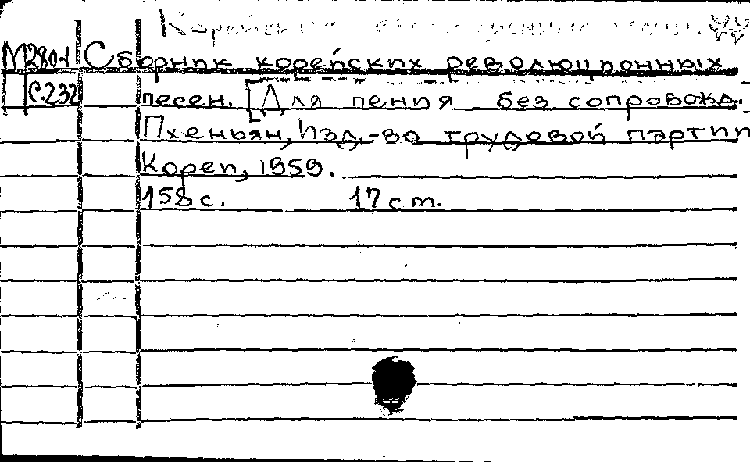 М2801 Сборник корейских революционных
С.232 песен. [Для пения без сопровожд.
Пхеньян, Изд.-во трудовой партии
Кореи, 1959.
158 с. 17 cm.